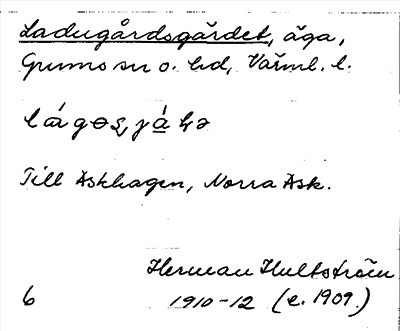 Ladugårdsgärdet, äga,
Grums sn o. hd, Värml. l.
Till Askhagen, Norra Ask.
Herman Hultström
6 1910-12 (e. 1909.)